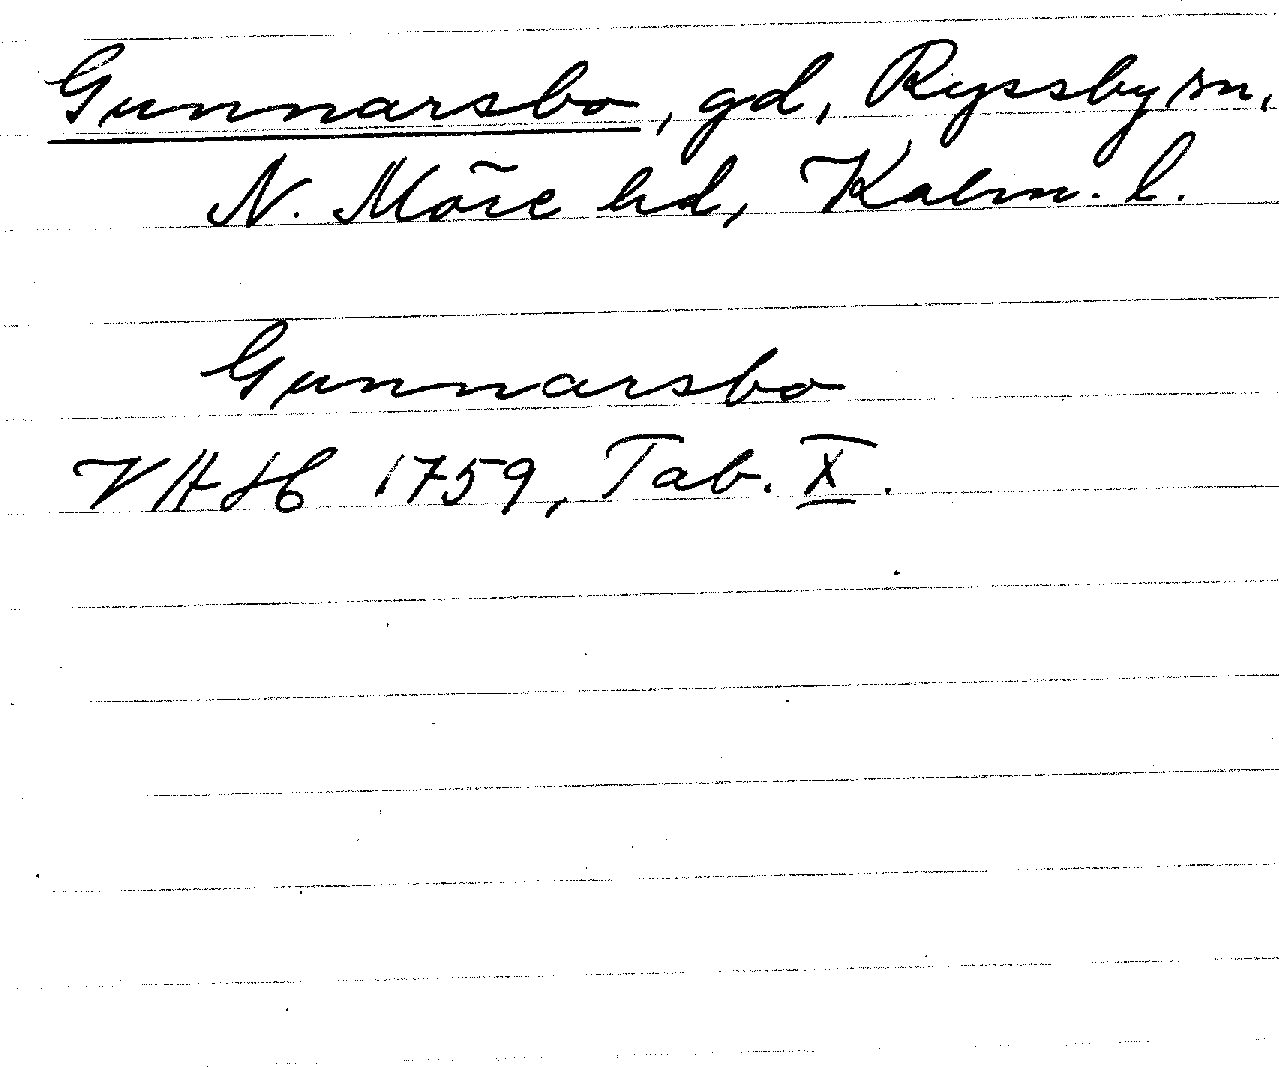 Gunnarsbo, gd, Ryssby sn,
N. Möre hd, Kalm. l.
Gunnarsbo
VAH 1759, Tab. X.